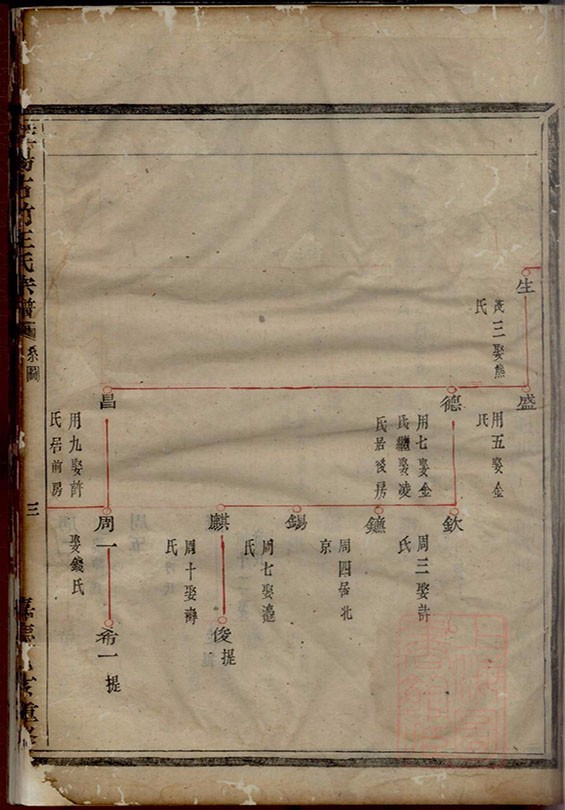 生
茂三娶熊
氏
盛
用五娶金
氏
德
用七娶金
氏繼娶凌
氏居後房
昌
用九娶許
氏居前房
欽
周三娶許
氏
鑣
周四居北
京
錫
周七娶
氏
麒
周十娶
氏
俊
提
周一
娶錢氏
希一
提
王氏宗譜
系圖
三